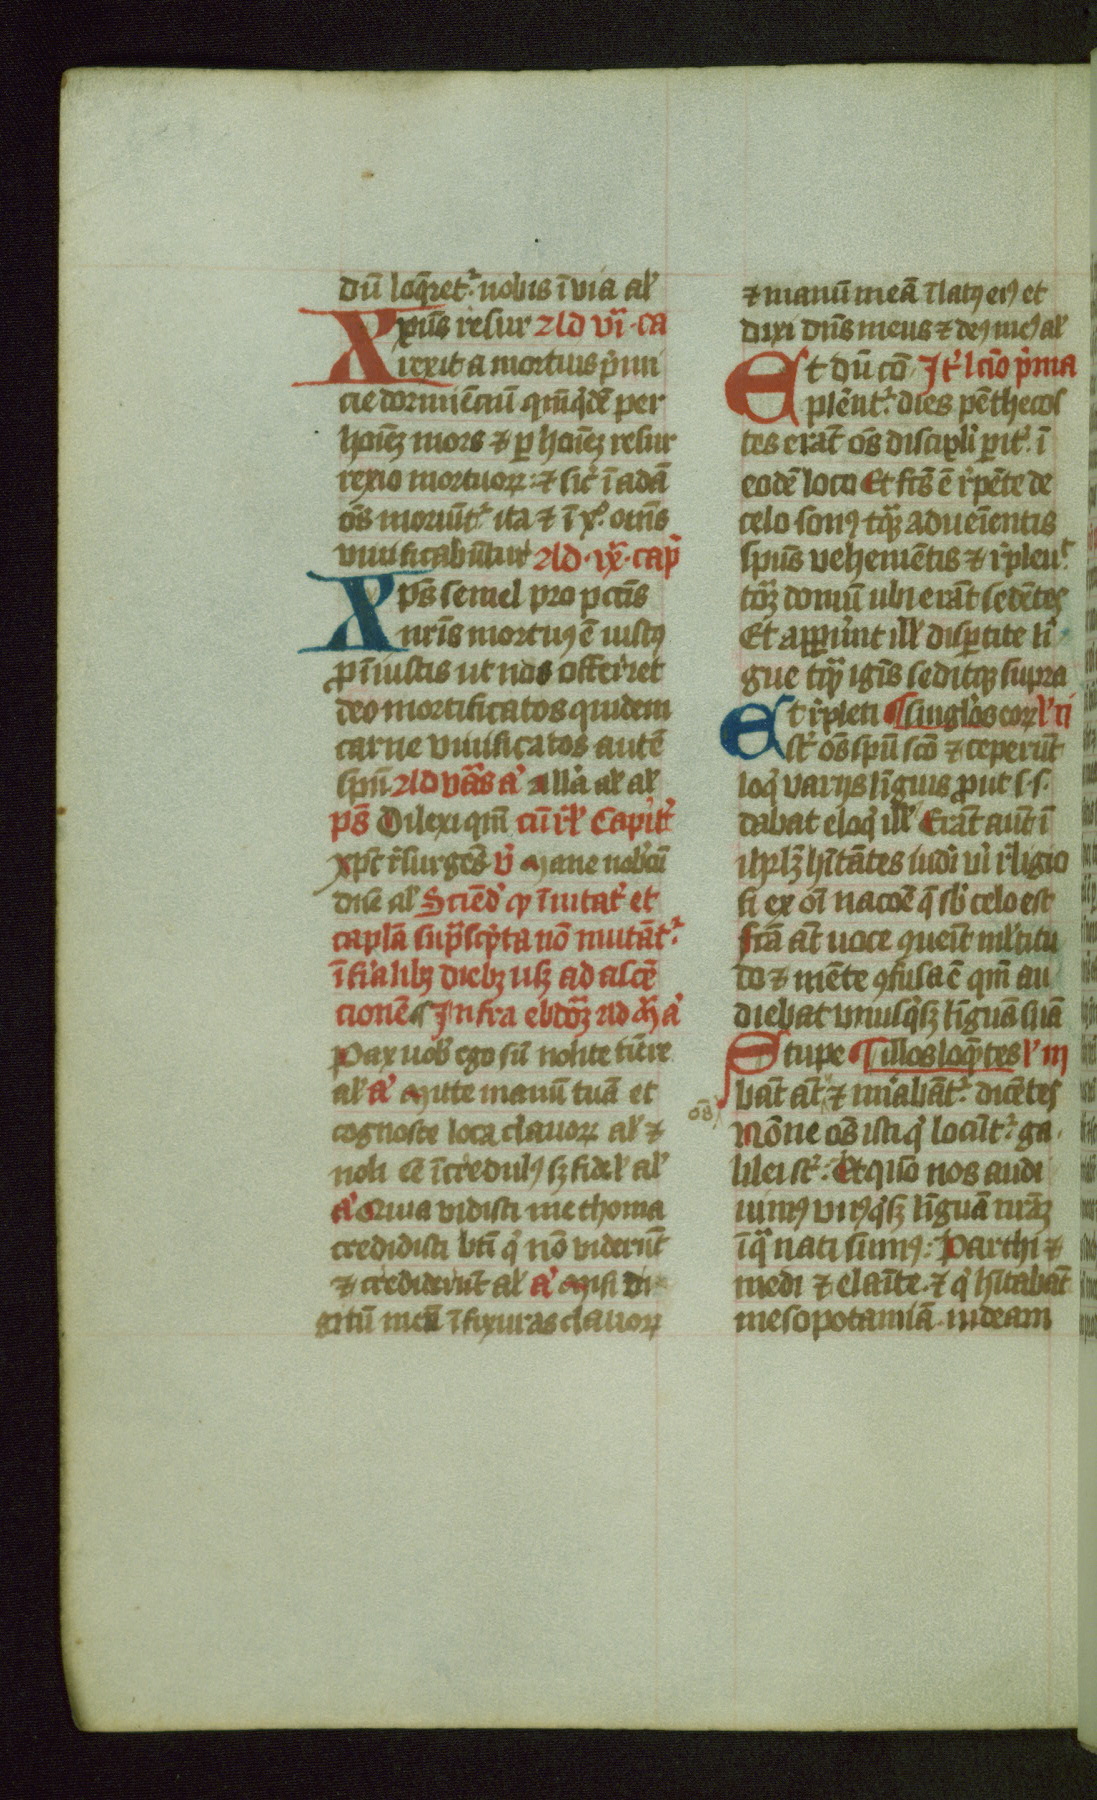 dū loq̄ret᷑ nobis ī via al᷑
Xpūs resur ad vi ca
rexit a mortuis p̄mi
cie dormiēciū qm̄ q̄dē per
hoīeȝ mors ⁊ ꝑ hoīeȝ resur
rexio mortuoꝝ: ⁊ sic᷑ ī adā
oēs moriūt᷑ ita ⁊ ī xº. omīs
viuificabūtur ad ix cap᷑
Xp̄s semel pro pctīs
nrīs mortuꝰ ē iustꝰ
ꝓ īiustis ut nos offerret
deo mortificatos quidem
carne viuificatos autē
spū ad vās a᷑ all᷑a al᷑ al᷑
ps̄ Dilexi qm̄ cū r᷑l᷑ Capit᷑l᷑
xpc̄ r᷑surgēs v᷑ mane nobcū
dn̄e al᷑ Sciēd᷑ ꝙ īuitat᷑ et
capl᷑a sup̄scp̄ta nō mutāt᷑
ī fīalibȝ diebȝ usqȝ ad ascē
cionē Infra ebdōȝ ad m̄ a᷑
Pax uob᷑ ego sū nolite tim̄e
al᷑ a᷑ Mitte manū tuā et
cognosce loca clauoꝝ al᷑ ⁊
noli eē īcredulꝰ sȝ fidel᷑ al᷑
a᷑ Quia vidisti me thoma
credidisti bt̄i q᷑ nō viderūt
⁊ crediderūt al᷑ a᷑ Misi di
gitū meū ī fixuras clauoꝝ
⁊ manū meā ī latꝰ eiꝰ et
dixi dn̄s meus ⁊ deꝰ meꝰ al᷑
Et dū cō It᷑ lcīo p̄ma
plēut᷑ dies pēthecos
tes erāt oēs discipli pit᷑ ī
eodē loco Et fcs̄ ē r᷑pēte de
celo sonꝰ tq̄ȝ adueīentis
spūs vehemētis ⁊ r᷑pleu᷑t
totȝ domū ubi erāt sedētes
Et apparūnt ill᷑ disꝑtite li
gue tq̄ȝ ignīs seditqȝ supra
Et r᷑pleti singl᷑os eoꝝ l᷑ ii
st᷑ oēs spū scō ⁊ ceperūt
loq᷑ varijs līguis ꝓut s. s.
dabat eloq᷑ ill᷑ Erāt aūt ī
ihrlȝ hītātes iudi᷑ vi᷑ r᷑ligio
si ex oī nacōe q̄ sb᷑ celo est
fcā āt uoce ꝯueīt ml᷑titu
do ⁊ mēte ꝯfusa ē qm̄ au
diebat vnusq᷑sqȝ līguā suā
Stupe illos loq̄tes l᷑ iii
bāt āt ⁊ mirabāt᷑ dicētes
oēs
Nōne oēs isti q᷑ locūt᷑ ga
lilei st᷑: Et quō nos audi
uimꝰ vnꝰq᷑sqȝ līguā nrāȝ
ī qua nati sumꝰ: Parthi ⁊
medi ⁊ elaīte ⁊ q᷑ hītabāt
mesopotamiā iudeam